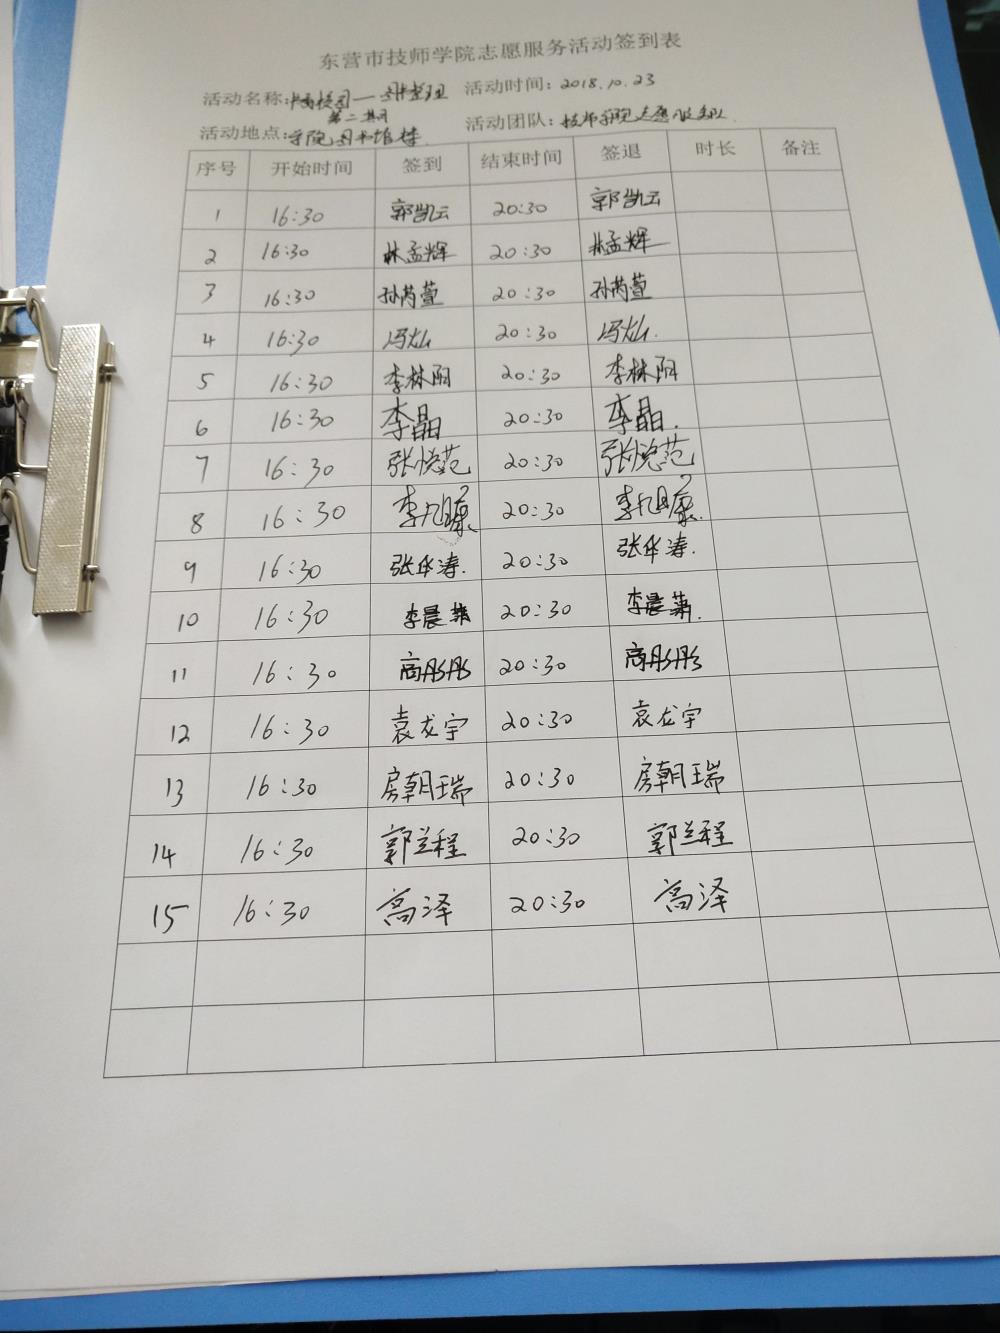 东营市技师学院志愿服务活动签到表
活动名称: 校园一 整理 活动时间: 2018.10.23
第二期
活动地点: 学院图书馆楼 活动团队: 技师学院志愿服务队
序号 开始时间 签到 结束时间 签退 时长 备注
1 16:30 郭凯云 20:30 郭凯云
2 16:30 林孟辉 20:30 林孟辉
3 16:30 孙芮萱 20:30 孙芮萱
4 16:30 冯灿 20:30 冯灿.
5 16:30 李林阳 20:30 李林阳
6 16:30 李晶 20:30 李晶.
7 16:30 张悦范 20:30 张悦范
8 16:30 李 康 20:30 李 康.
9 16:30 张华涛. 20:30 张华涛.
10 16:30 李晨 20:30 李晨
11 16:30 商彤彤 20:30 商彤彤
12 16:30 袁龙宇 20:30 袁龙宇
13 16:30 房朝瑞 20:30 房朝瑞
14 16:30 郭兰程 20:30 郭兰程
15 16:30 高泽 20:30 高泽